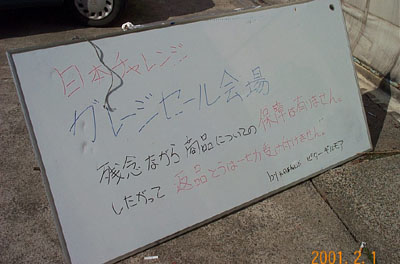 日本チャレンジ
ガレージセール会場
残念ながら商品についての保障は有りません。
したがって返品とうは一切受け付けません。
by
2001. 2. 1